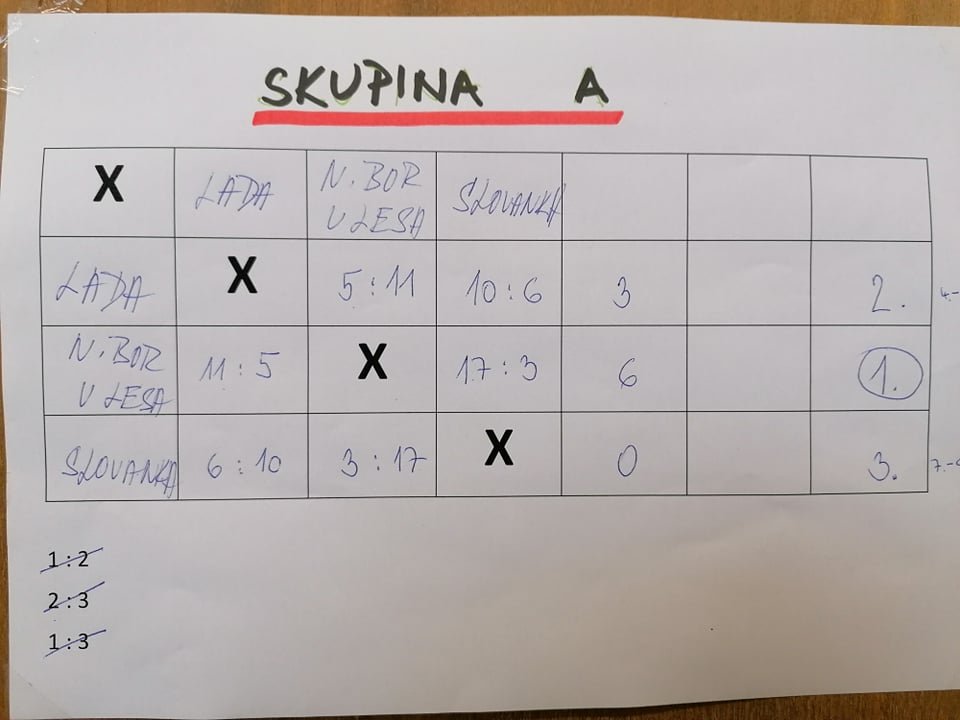 SKUPINA A
X LADA N.BOR U LESA SLOVANKA
LADA X 5:11 10:6 3 2. 4.-
N.BOR U LESA 11:5 X 17:3 6 1.
SLOVANKA 6:10 3:17 X 0 3. 7.-
1:2
2:3
1:3